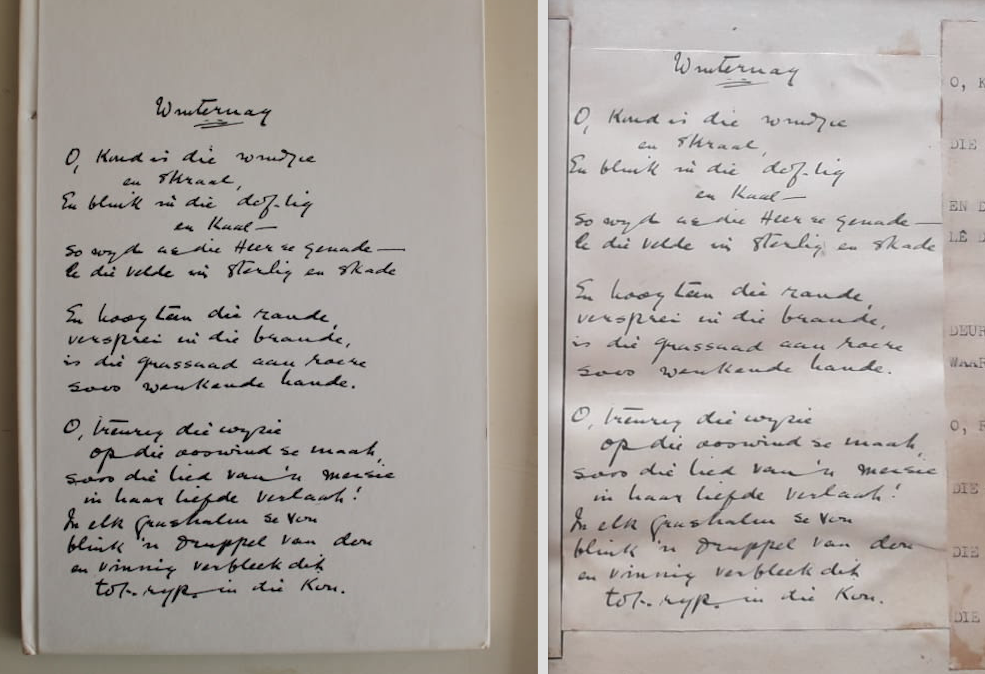 Winternag
O, Koud is die windjie
en skraal,
En blink in die dof-lig
en Kaal—
so wyd as die Heer se genade—
le die velde in sterlig en skade
En hoog teen die rande,
versprei in die brande,
is die grassaad aan roere
soos wenkende hande.
O, treurig die wysie
op die ooswind se maat,
soos die lied van 'n meisie
in haar liefde verlaat!
In elk Grashalm se vou
blink 'n druppel van dou
en vinnig verbleek dit
tot ryp in die Kou.
Winternag
O, Koud is die windjie
en skraal,
En blink in die dof-lig
en Kaal—
so wyd as die Heer se genade—
le die velde in sterlig en skade
En hoog teen die rande,
versprei in die brande,
is die grassaad aan roere
soos wenkende hande.
O, treurig die wysie
op die ooswind se maat,
soos die lied van 'n meisie
in haar liefde verlaat!
In elk Grashalm se vou
blink 'n druppel van dou
en vinnig verbleek dit
tot ryp in die Kou.
O, K
DIE
EN D
LÊ D
DEUR
WAAR
O,
DIE
DIE
DIE